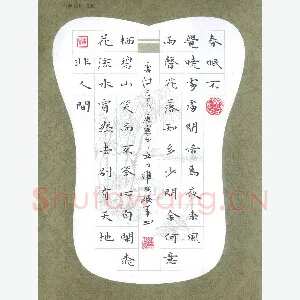 春眠不
覺曉處々聞啼鳥夜來風
雨聲花落知多少問余何意
栖碧山笑而不答心自閑桃
花流水窅然去別有天地
非人間
Shufawang.CN